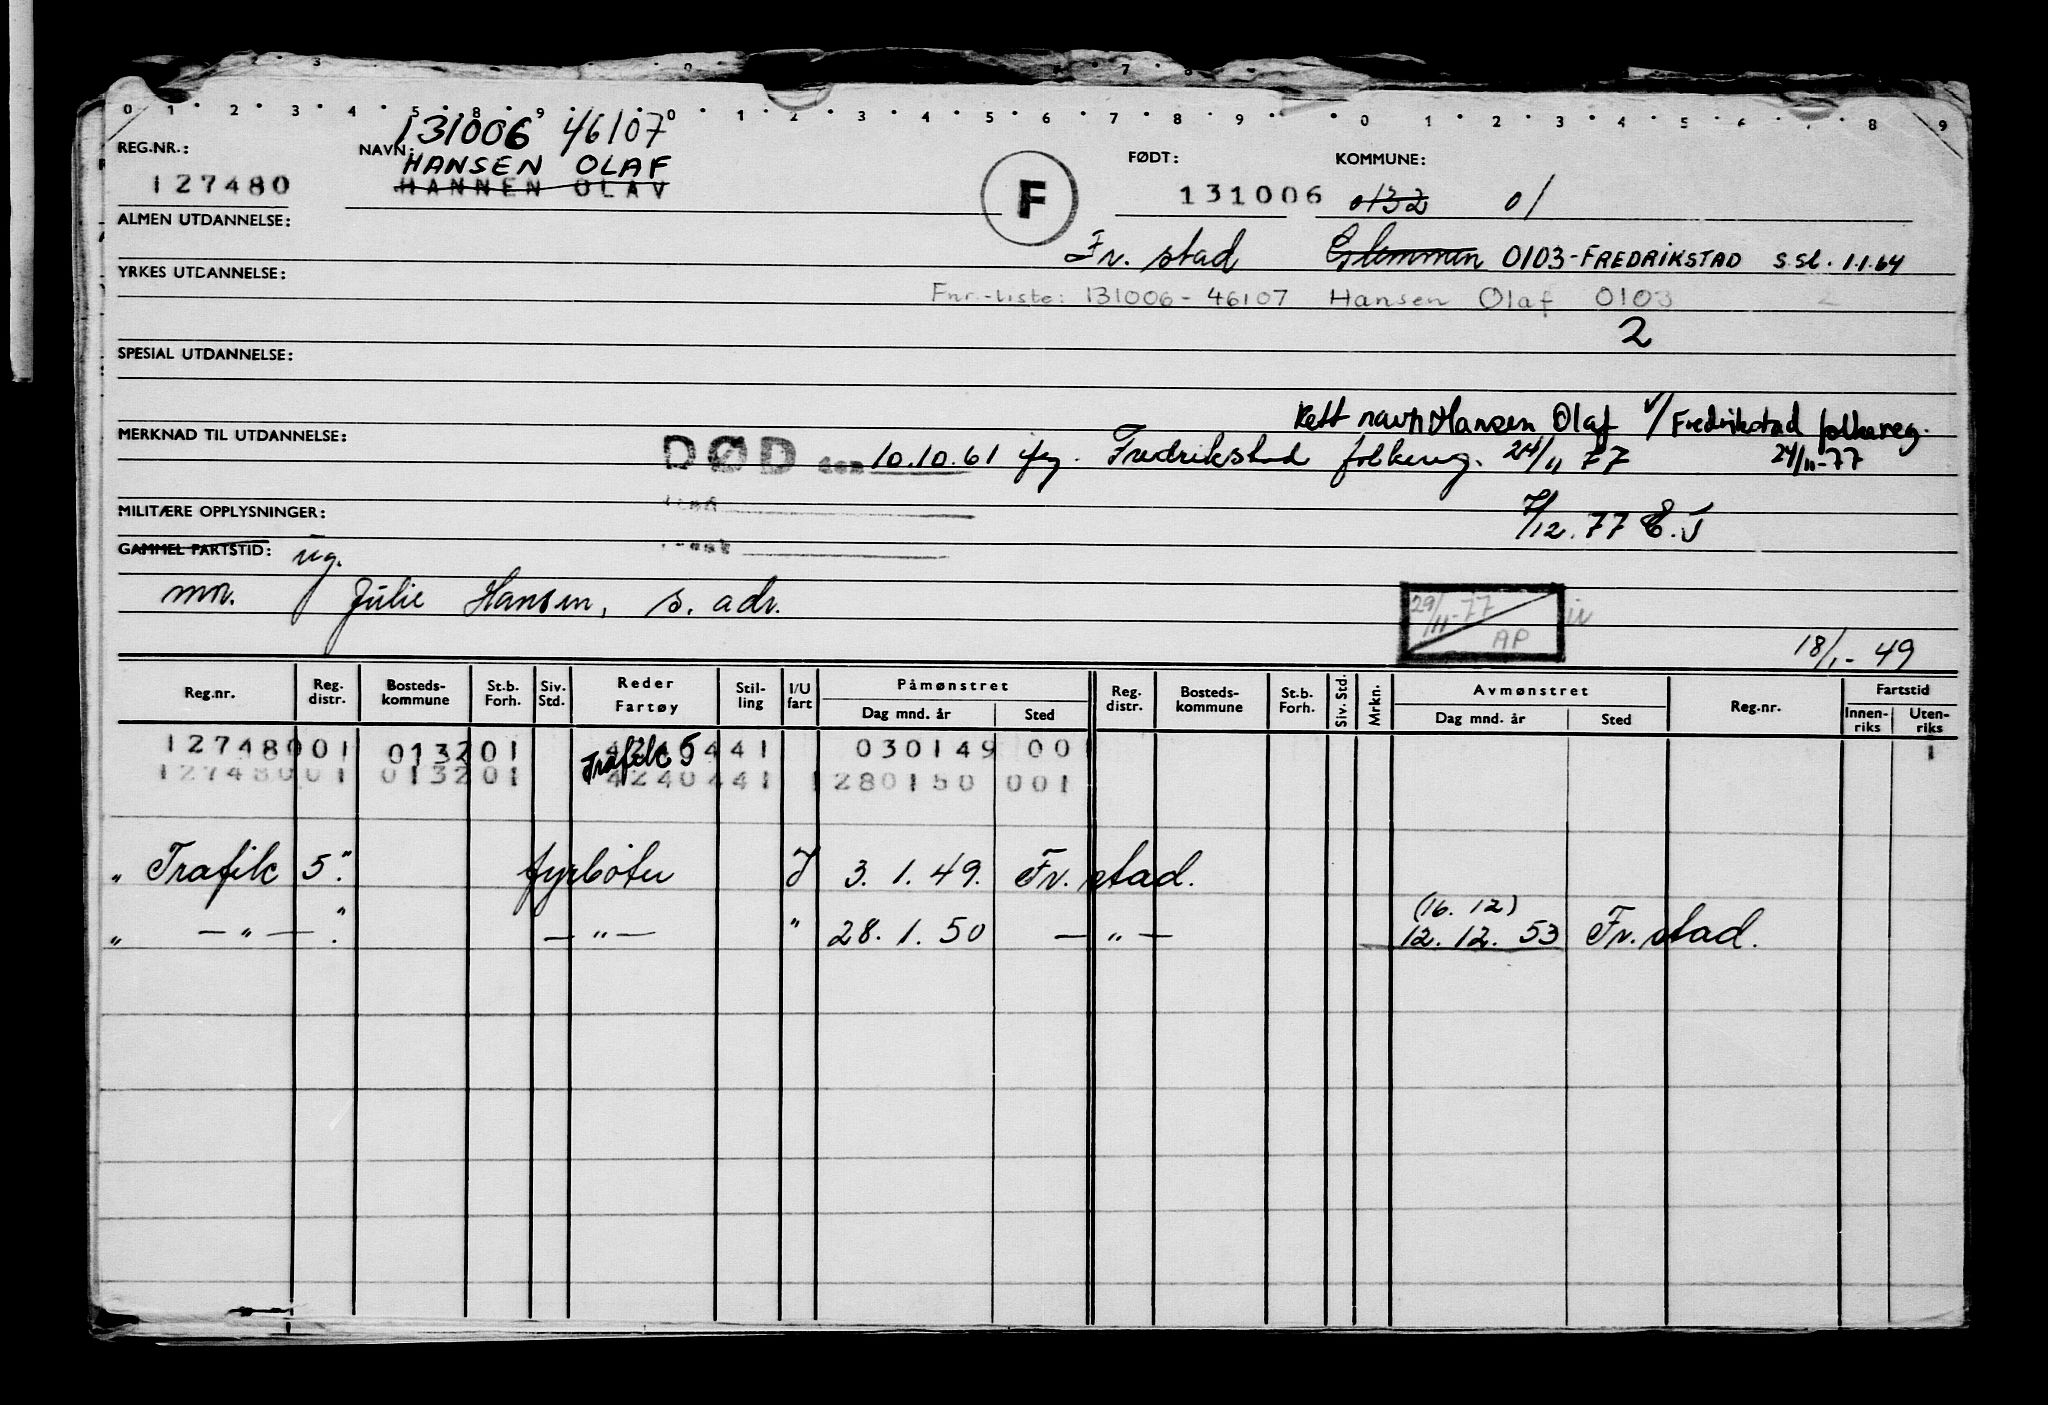 0 1 2 3 4 5 8 9 0 1 2 3 4 5 6 7 8 9 0 1 2 3 4 5 6 7 8 9
131006 46107
REG.NR.: NAVN: HANSEN OLAF FØDT: KOMMUNE:
127480 HANNEN OLAV F 131006 0132 01
ALMEN UTDANNELSE:
Fr. stad Glemmen 0103-FREDRIKSTAD s.sl. 1.1.64
YRKES UTDANNELSE:
Fnr.-liste: 131006-46107 Hansen Olaf 0103 2
2
SPESIAL UTDANNELSE:
Rett navn Hansen Olaf v/ Fredrikstad folkereg.
MERKNAD TIL UTDANNELSE:
DØD den 10.10.61 ifg. Fredrikstad folkereg. 24/11 77 24/11-77
MILITÆRE OPPLYSNINGER:
7/12.77 E.J
GAMMEL FARTSTID: ug.
mor. Julie Hansen, s. adr.
29/11-77
AP
18/1-49
Reg.nr. Reg. distr. Bosteds-kommune St.b. Forh. Siv. Std. Reder Fartøy Stil-ling I/U fart Påmønstret Dag mnd. år Sted Reg. distr. Bosteds-kommune St.b. Forh. Siv. Std. Mrkn. Avmønstret Dag mnd. år Sted Reg.nr. Fartstid Innen-riks Uten-riks
127480 01 0132 01 Trafik 5 441 030149 001 1
127480 01 0132 01 4240441 1 280150 001
„ Trafik 5." fyrbøter I 3. 1. 49. Fr. stad.
(16. 12)
„ — " — ." — " — " 28. 1. 50 — " — 12. 12. 53 Fr. stad.